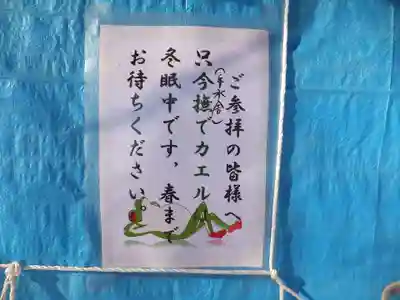 ご参拝の皆様へ
(手水舎)
只今撫でカエルは
冬眠中です，春まで
お待ちください。